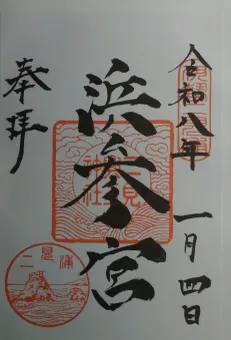 令和八年 一月四日
浜参宮
奉拝
二見浦